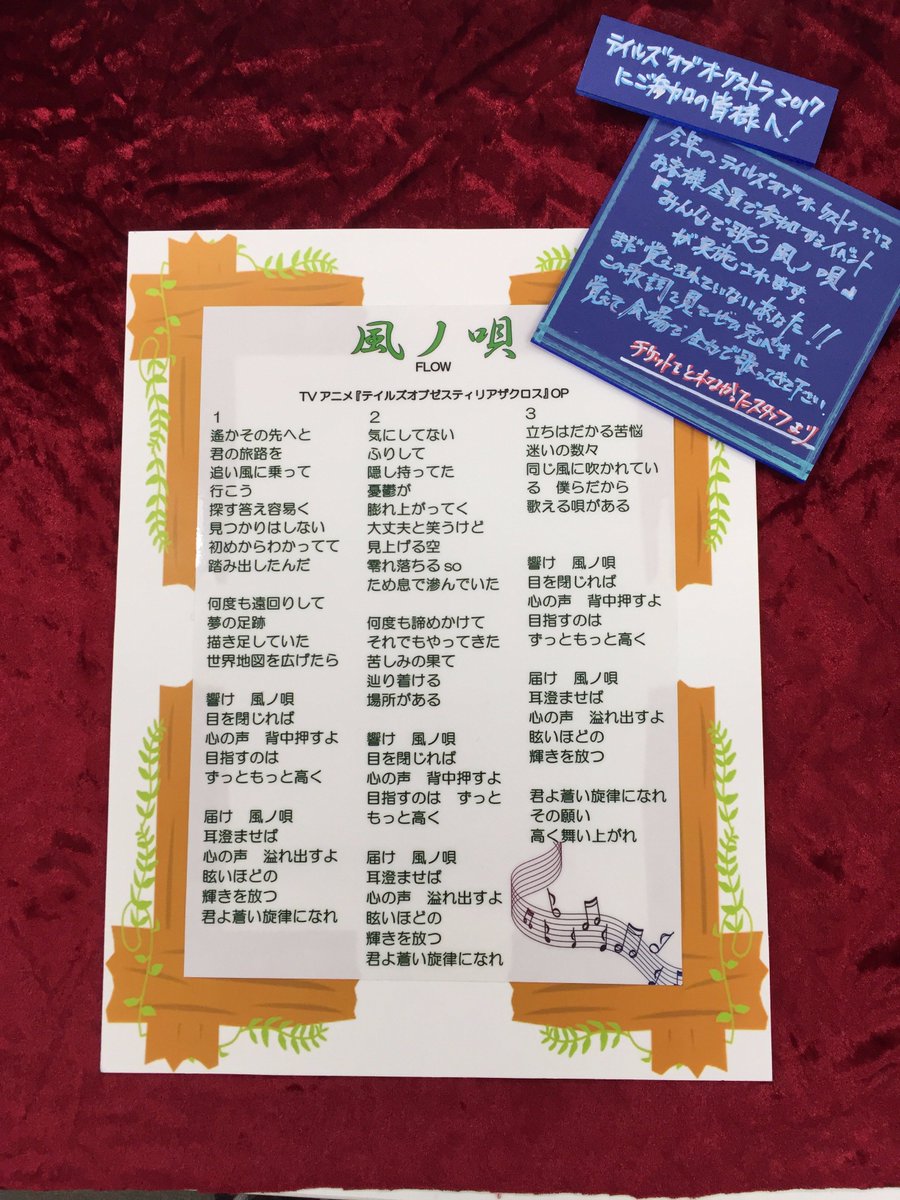 テイルズオブオーケストラ2017
にご参加の皆様へ!
今年のテイルズオブオーケストラでは
お客様全員で参加するイベント
『みんなで歌う風ノ唄』
が実施されます。
まだ覚えきれていないあなた!!
この歌詞を見てぜひ完ペキに
覚えて会場で全力で歌ってきて下さい。
風ノ唄
FLOW
TVアニメ『テイルズオブゼスティリアザクロス』OP
1
遙かその先へと
君の旅路を
追い風に乗って
行こう
探す答え容易く
見つかりはしない
初めからわかってて
踏み出したんだ
何度も遠回りして
夢の足跡
描き足していた
世界地図を広げたら
響け 風ノ唄
目を閉じれば
心の声 背中押すよ
目指すのは
ずっともっと高く
届け 風ノ唄
耳澄ませば
心の声 溢れ出すよ
眩いほどの
輝きを放つ
君よ蒼い旋律になれ
2
気にしてない
ふりして
隠し持ってた
憂鬱が
膨れ上がってく
大丈夫と笑うけど
見上げる空
零れ落ちる so
ため息で滲んでいた
何度も諦めかけて
それでもやってきた
苦しみの果て
辿り着ける
場所がある
響け 風ノ唄
目を閉じれば
心の声 背中押すよ
目指すのは ずっと
もっと高く
届け 風ノ唄
耳澄ませば
心の声 溢れ出すよ
眩いほどの
輝きを放つ
君よ蒼い旋律になれ
3
立ちはだかる苦悩
迷いの数々
同じ風に吹かれてい
る 僕らだから
歌える唄がある
響け 風ノ唄
目を閉じれば
心の声 背中押すよ
目指すのは
ずっともっと高く
届け 風ノ唄
耳澄ませば
心の声 溢れ出すよ
眩いほどの
輝きを放つ
君よ蒼い旋律になれ
その願い
高く舞い上がれ